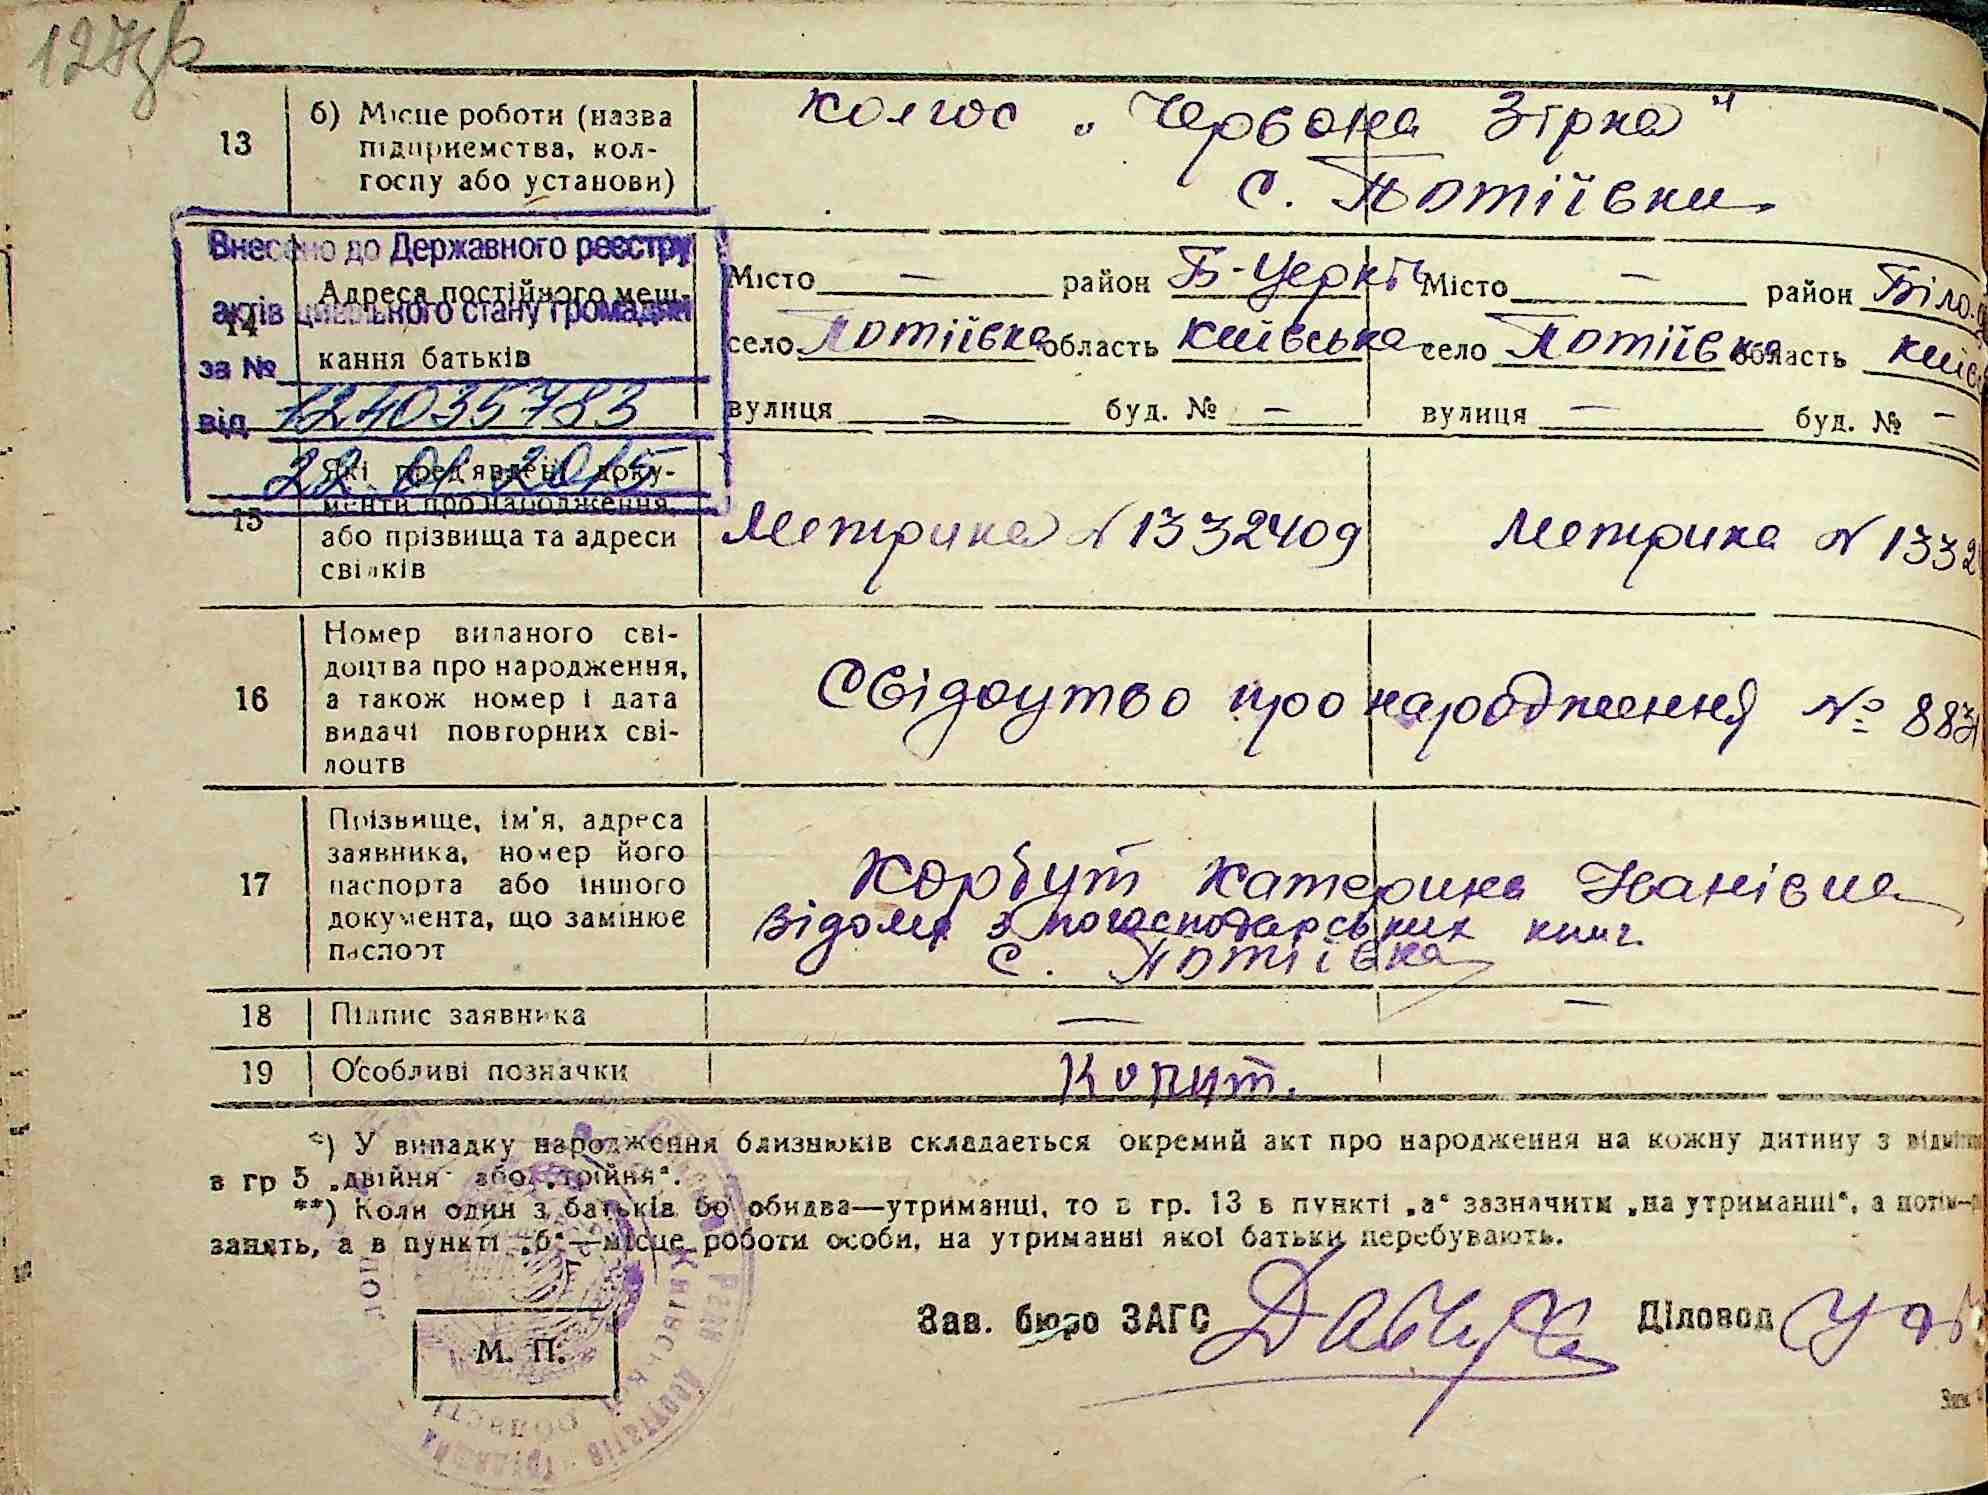 127зв
13
б) Місце роботи (назва
підприємства, кол-
госпу або установи)
колгос „Червона Зірка"
с. Потіївки
Внесено до Державного реєстру
актів цивільного стану громадян
за №
124035783
від
22 01 2015
14
Адреса постійного меш-
кання батьків
Місто — район Б-Церків
село Потіївка область Київська
вулиця — буд. № —
Місто — район Біло-
село Потіївка область Київ
вулиця — буд. № —
15
Які пред'явлені доку-
менти про народження,
або прізвища та адреси
свідків
Метрика N 1332409
Метрика N 1332
16
Номер виданого сві-
доцтва про народження,
а також номер і дата
видачі повторних сві-
доцтв
Свідоцтво про народження № 883
17
Прізвище, ім'я, адреса
заявника, номер його
паспорта або іншого
документа, що замінює
паспорт
Корбут Катерина Іванівна
відома з погосподарських книг
с. Потіївка
18
Підпис заявника
—
—
19
Особливі позначки
*) У випадку народження близнюків складається окремий акт про народження на кожну дитину з відміт
в гр 5 „двійня" або „трійня".
**) Коли один з батьків бо обидва—утриманці, то в гр. 13 в пункті „а" зазначити „на утриманні", а потім—
занять, а в пункті „б"—місце роботи особи, на утриманні якої батьки перебувають.
Зав. бюро ЗАГС
Діловод
М. П.
Рада депутатів трудящих
Київської
області
Зам